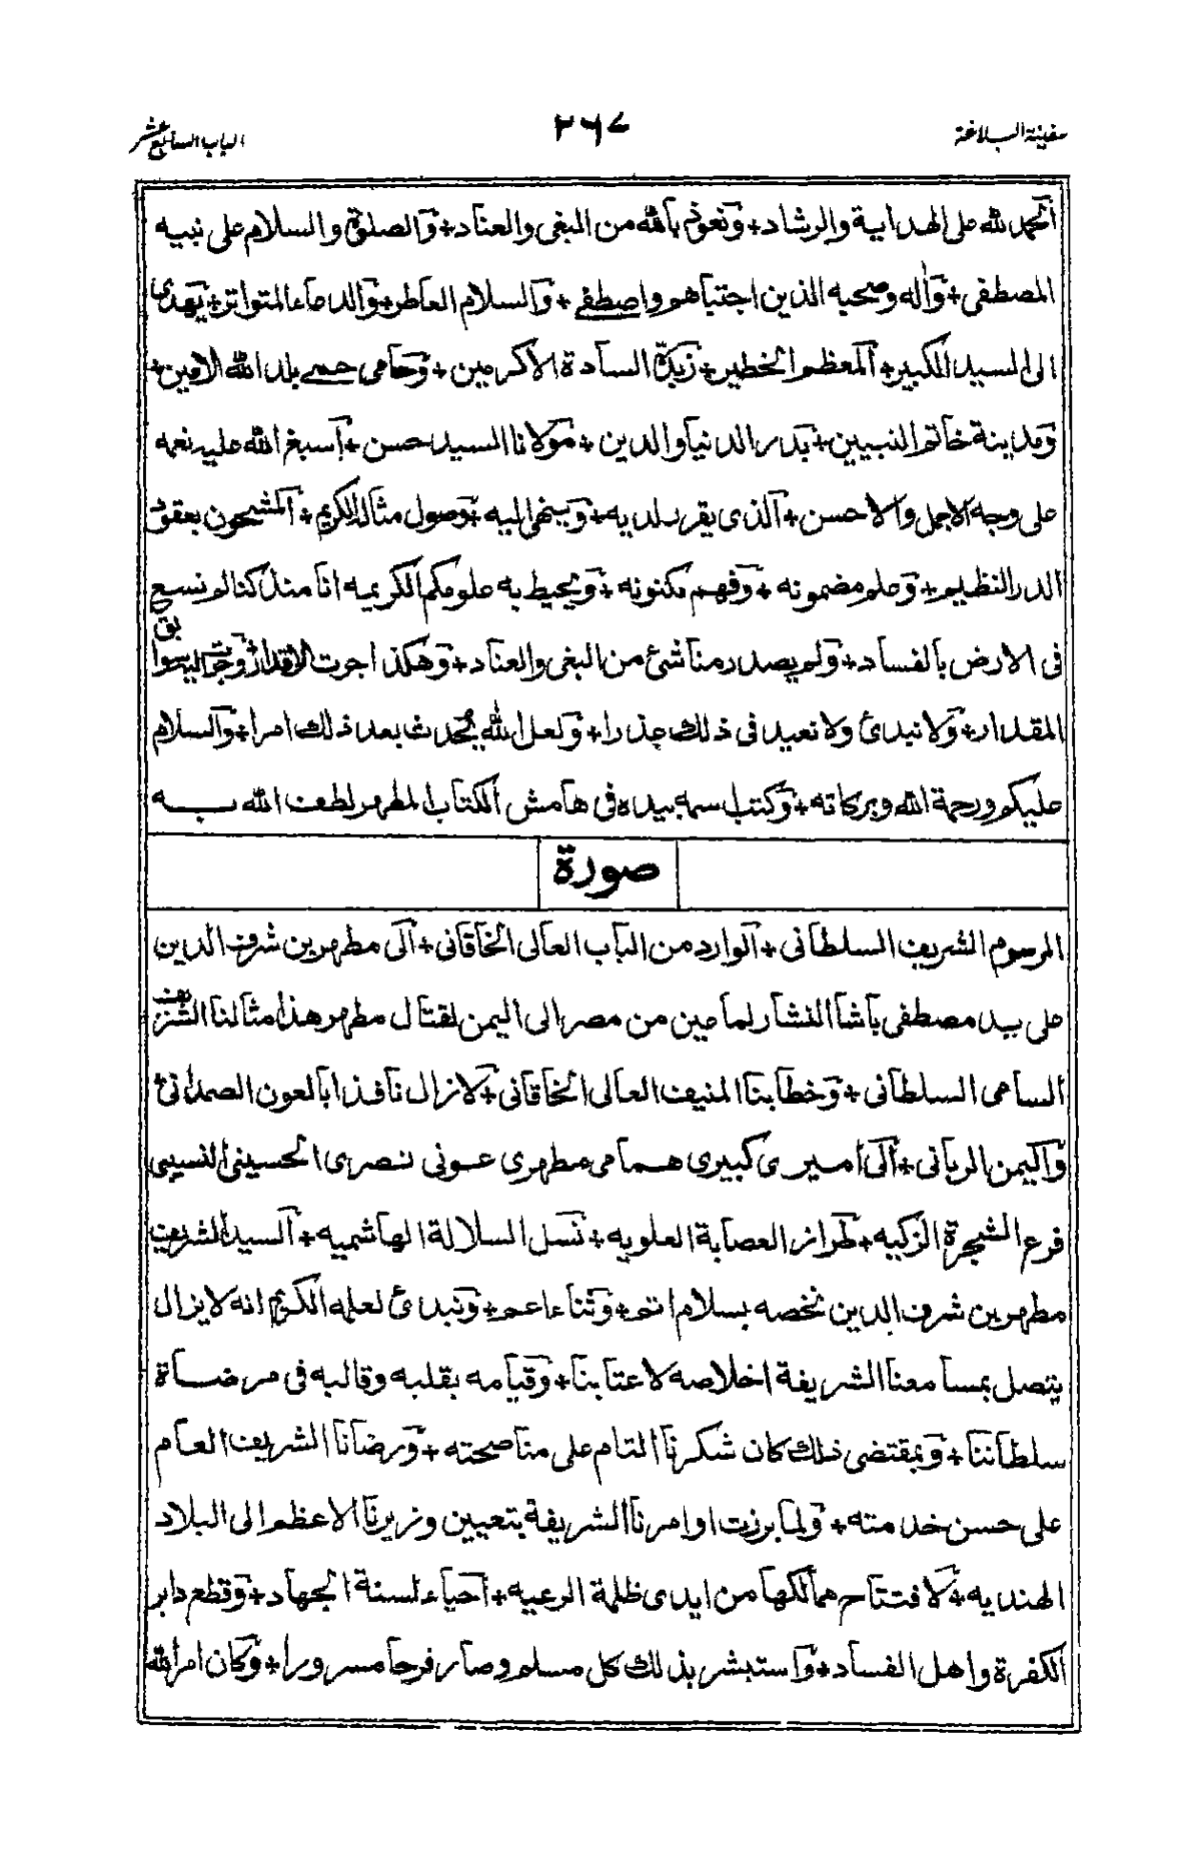 سفينة البلاغة
٢٦٧
الباب السابع عشر
الحمد لله على الهداية والرشاد + ونعوذ بالله من البغى والعناد + والصلوة والسلام على نبيه
المصطفى + واله وصحبه الذين اجتباهم واصطفى + والسلام العاطر + والدعاء المتواتر + يهدى
الى السيد الكبير + المعظم الخطير + زبدة السادة الاكرمين + وحامى حمى بلد الله الامين +
ومدينة خاتم النبيين + بدر الدنيا والدين + مولانا السيد حسن + اسبغ الله عليه نعمه
على وجه الاجمل والاحسن + الذى يقرر لديه + وينهى اليه + وصول مثاله الكريم + المشحون بعقود
الدر النظيم + وعلم مضمونه + وفهم مكنونه + ويحيط به علومكم الكريمه انا منذ كنا لم نسع
فى الارض بالفساد + ولم يصدر منا شئ من البغى والعناد + وهكذا اجرت الاقدار + وجرت بسوابق
المقدار + ولا نبدئ ولا نعيد فى ذلك عذرا + ولعل الله يحدث بعد ذلك امرا + والسلام
عليكم ورحمة الله وبركاته + وكتب اسمه بيده فى هامش الكتاب المطهر لطف الله به
صورة
المرسوم الشريف السلطانى + الوارد من الباب العالى الخاقانى + الى مطهر بن شرف الدين
على يد مصطفى باشا النشار لما عين من مصر الى اليمن لقتال مطهر هذا مثالنا الشريف
السامى السلطانى + وخطابنا المنيف العالى الخاقانى + لا زال نافذا بالعون الصمدانى
واليمن الربانى + الى اميرى كبيرى همامى مطهرى عونى نصرى الحسينى النسيبى
فرع الشجرة الزكيه + طراز العصابة العلويه + نسل السلالة الهاشميه + السيد الشريف
مطهر بن شرف الدين نخصه بسلام اتم + وثناء اعم + ونبدئ لعلمه الكريم انه لا يزال
يتصل بمسامعنا الشريفة اخلاصه لاعتابنا + وقيامه بقلبه وقالبه فى مرضاة
سلطاننا + وبمقتضى ذلك كان شكرنا التام على مناصحته + ورضانا الشريف العام
على حسن خدمته + ولما برزت اوامرنا الشريفة بتعيين وزيرنا الاعظم الى البلاد
الهنديه + لافتتاح ممالكها من ايدى ظلمة الرعيه + احياء لسنة الجهاد + وقطع دابر
الكفرة واهل الفساد + واستبشر بذلك كل مسلم وصار فرحا مسرورا + وكان امر الله